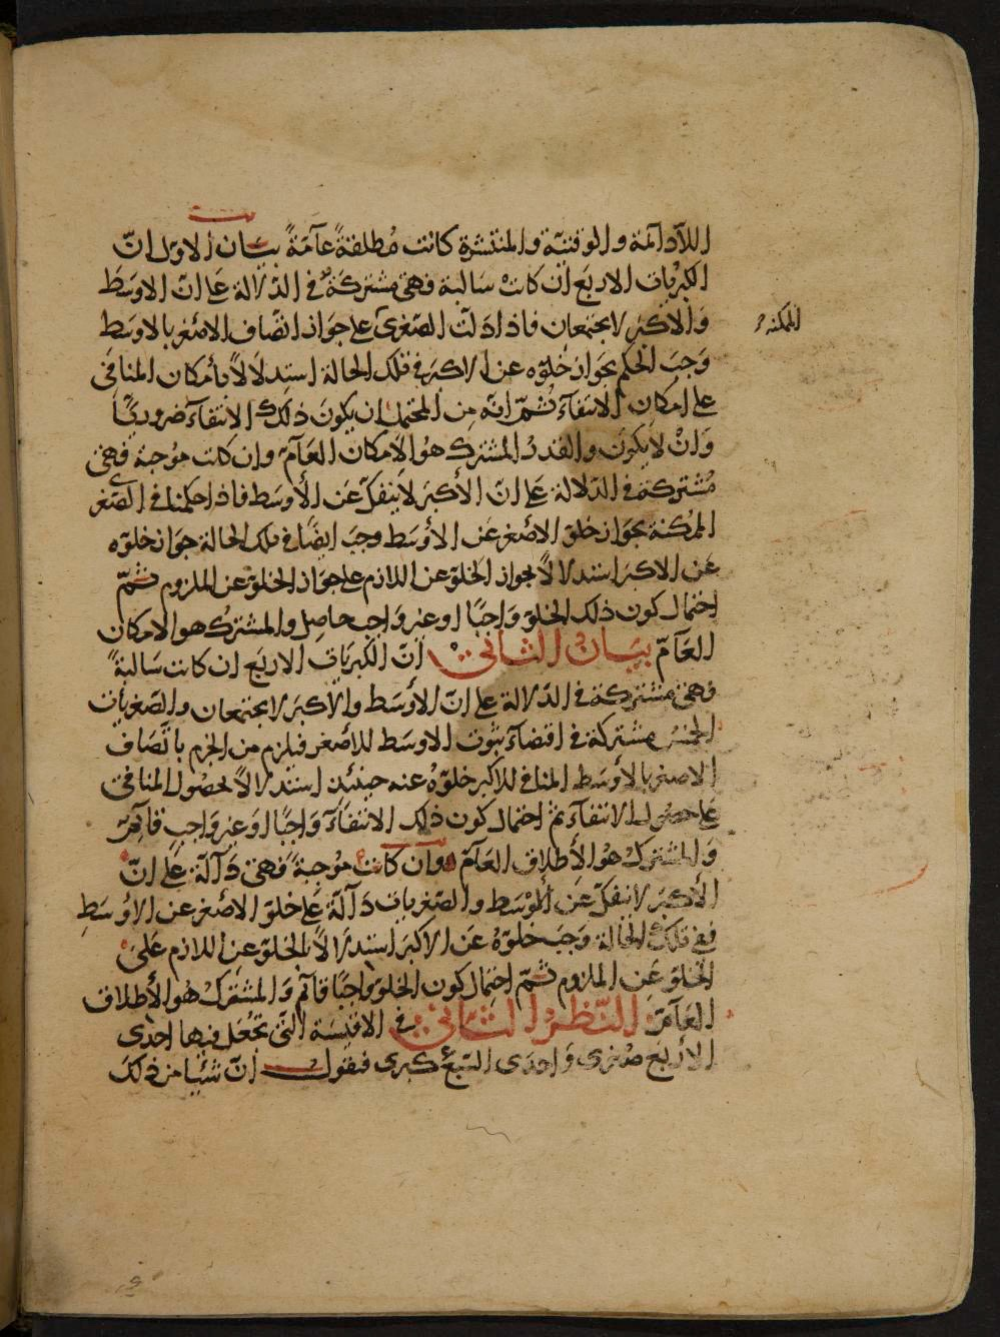 اللادائمة والوقتية والمنتشرة كانت مُطلقةً عآمّةً بيَان الاول انّ
الكبريات الاربع ان كانت سَالبة فهى مشتركة فى الدلالة على ان الاوسَط
وَالاكبر لا يجتمعان فاذا دلت الصّغرى على جواز اتّصاف الاصغر بالاوسَط
الممكنة
وَجبَ الحكم بجَواز خُلوّه عن الاكبر فى تلك الحالة استدلالاً بأمكان المنافى
على امكان الانتفآء ثمّ انّه من المحتمل ان يكون ذلك الانتفآء ضروريًّا
وَانْ لا يكون والقدر المشترك هوُ الامكان العَآم وان كانت موُجبة فهى
مُشتركة فى الدّلالة على انّ الأكبر لا ينفكّ عَن الأوسَط فاذا حكمنا فى الصّغرى
الممكنة بجوَاز خلوّ الاصغر عَن الاوْسَط وجبَ ايضًا فى تلك الحالة جوَاز خلوّه
عَن الاكبر استدلالاً بجواز الخلوّ عن اللازم على جوَاز الخلوّ عن الملزوم ثمّ
احتمال كون ذلك الخلوّ وَاجبًا او غير وَاجب حاصل والمشترك هو الامكان
العَآمّ بيَان الثانى انّ الكبريَات الاربَع ان كانت سَالبةً
فهى مشتركة فى الدّلالة على انّ الأوسَط والاكبر لا يجتمعان والصّغريات
الخمس مشتركة فى اقتضآء ثبوت الاوسَط للاصغر فيلزم من الجزم باتّصَاف
الاصغر بالاوسَط المنافى للاكبر خلوّهُ عنه حينئذ استدلالاً بحصُول المنافى
على حصُول الانتفآء ثمّ احتمال كون ذلك الانتفآء وَاجبًا اوَ غير وَاجب قآئم
وَالمشترك هوُ الأطلاق العَآم وان كانت موُجبة فهى دَآلّة على انّ
الأكبر لا ينفكّ عَن الاوْسَط والصّغريات دَآلّة عَلى خلوّ الاصْغر عن الاوْسَطِ
ففى تلك الحالة وَجبَ خلوّهُ عَن الاكبر استدلالاً بالخلوّ عن اللازم عَلى
الخلوّ عَن الملزوم ثمّ احتمال كون الخلوّ وَاجبًا قآئم وَالمشترك هُو الأطلاق
العَآمّ النّظر الثانى فى الاقيسة التى تجُعَل فيها احدى
الاربع صغرى وَاحدَى التسع كبرى فنقول انّ شيئًا من ذلك